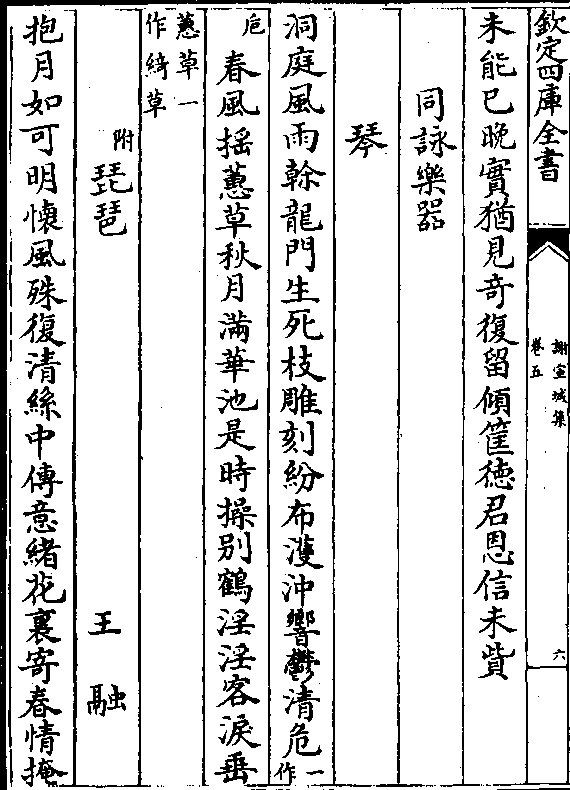 欽定四庫全書
謝宣城集
卷五
六
未能已晚實猶見奇復留傾筐徳君恩信未貲
同詠樂器
琴
洞庭風雨榦龍門生死枝雕刻紛布濩沖響鬱清危一作
巵
春風摇蕙草秋月滿華池是時操别鶴淫淫客淚垂
蕙草一
作綺草
附琵琶
王融
抱月如可明懷風殊復清絲中傳意緒花裏寄春情掩